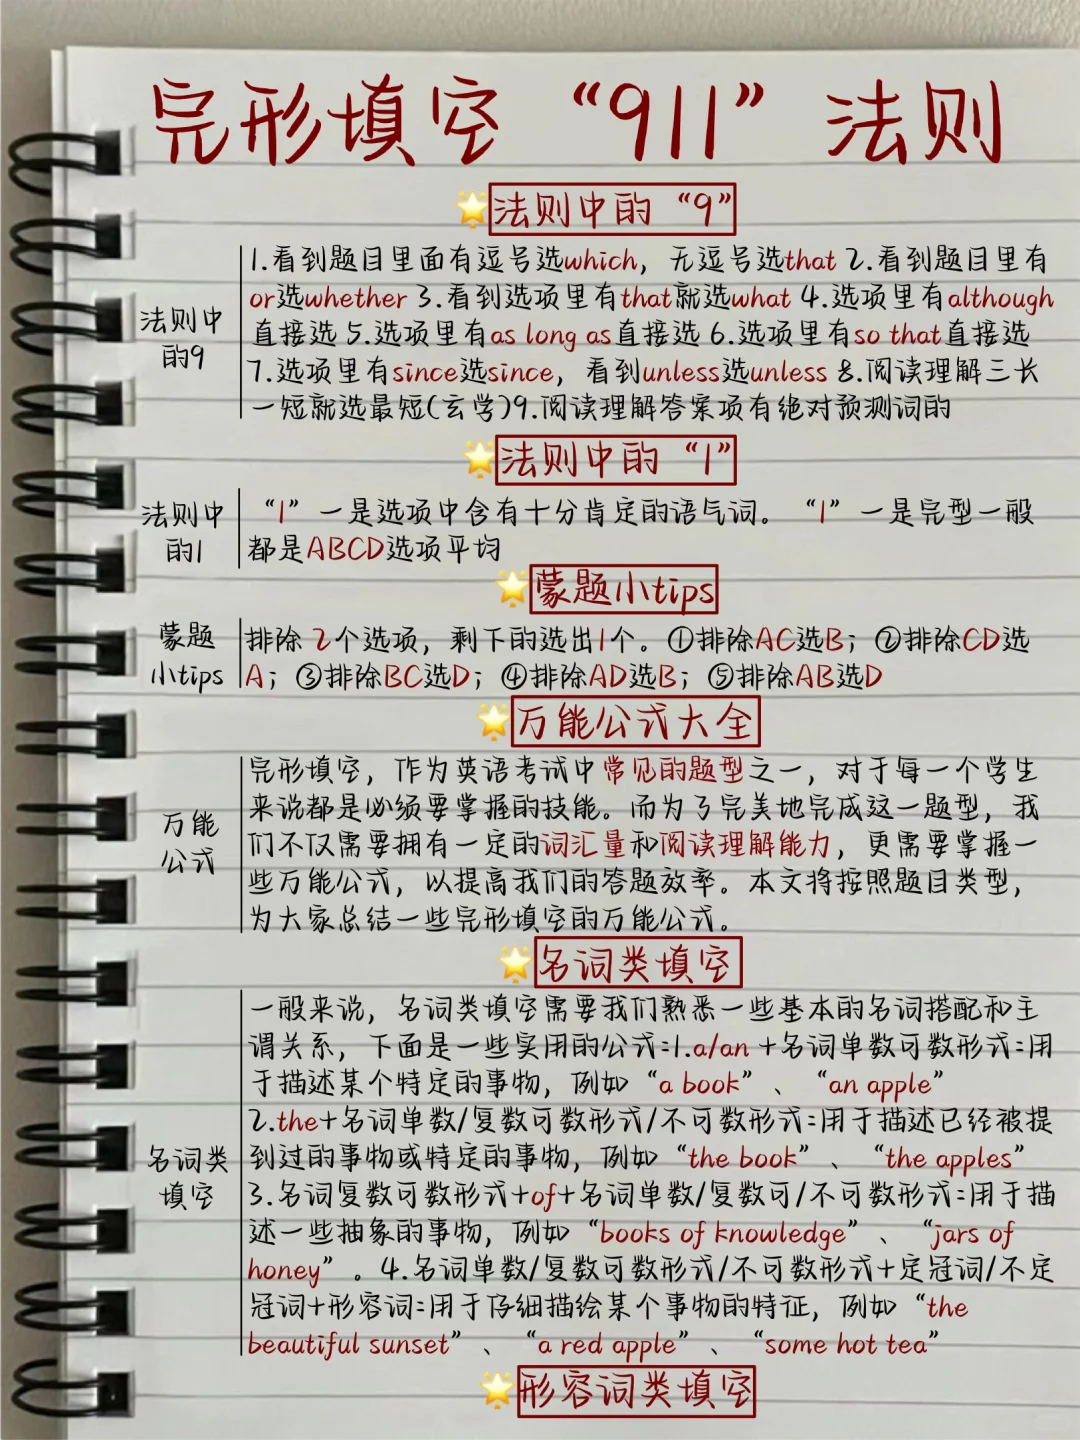 完形填空“911”法则
法则中的“9”
法则中
的9
1.看到题目里面有逗号选which，无逗号选that 2.看到题目里有
or选whether 3.看到选项里有that就选what 4.选项里有although
直接选 5.选项里有as long as直接选 6.选项里有so that直接选
7.选项里有since选since，看到unless选unless 8.阅读理解三长
一短就选最短(玄学)9.阅读理解答案项有绝对预测词的
法则中的“1”
法则中
的1
“1”一是选项中含有十分肯定的语气词。“1”一是完型一般
都是ABCD选项平均
蒙题小tips
蒙题
小tips
排除 2个选项，剩下的选出1个。①排除AC选B；②排除CD选
A；③排除BC选D；④排除AD选B；⑤排除AB选D
万能公式大全
万能
公式
完形填空，作为英语考试中常见的题型之一，对于每一个学生
来说都是必须要掌握的技能。而为了完美地完成这一题型，我
们不仅需要拥有一定的词汇量和阅读理解能力，更需要掌握一
些万能公式，以提高我们的答题效率。本文将按照题目类型，
为大家总结一些完形填空的万能公式。
名词类填空
名词类
填空
一般来说，名词类填空需要我们熟悉一些基本的名词搭配和主
谓关系，下面是一些实用的公式:1.a/an +名词单数可数形式:用
于描述某个特定的事物，例如“a book”、“an apple”
2.the+名词单数/复数可数形式/不可数形式:用于描述已经被提
到过的事物或特定的事物，例如“the book”、“the apples”
3.名词复数可数形式+of+名词单数/复数可/不可数形式:用于描
述一些抽象的事物，例如“books of knowledge”、“jars of
honey”。4.名词单数/复数可数形式/不可数形式+定冠词/不定
冠词+形容词:用于仔细描绘某个事物的特征，例如“the
beautiful sunset”、“a red apple”、“some hot tea”
形容词类填空